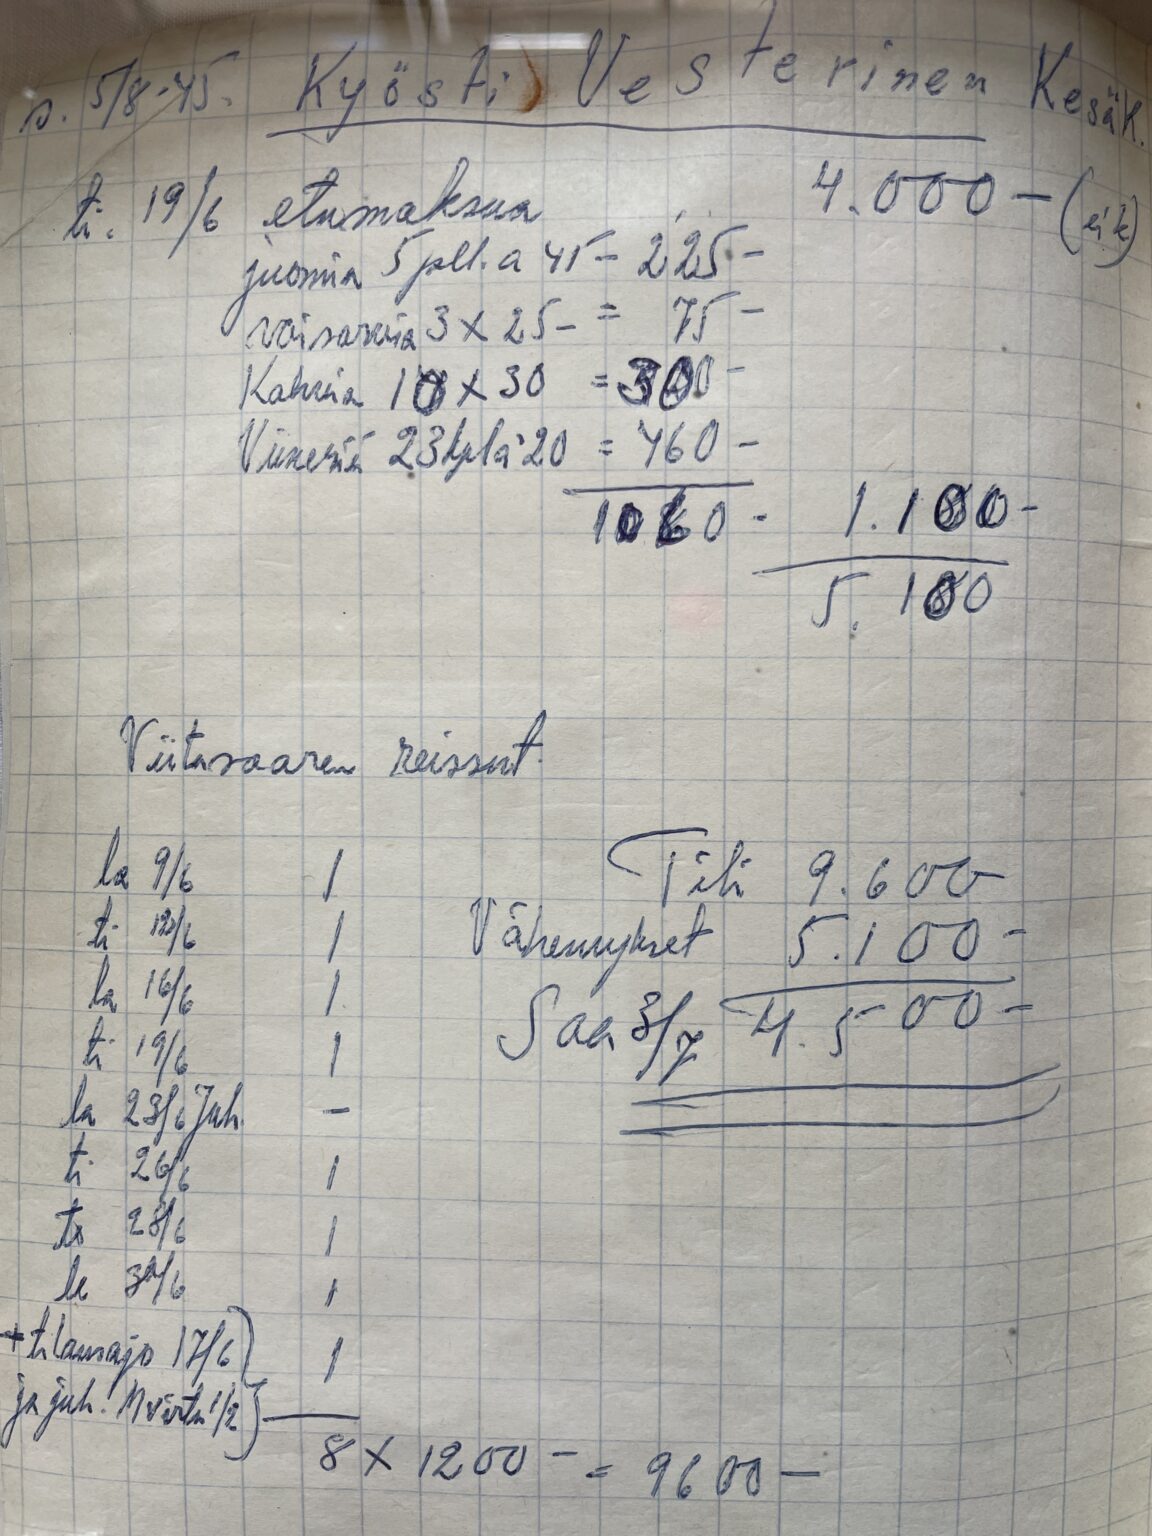 s. 5/8-45. Kyösti Vesterinen Kesäk.
ti. 19/6 etumaksua 4.000 - (eik)
juomia 5 pll. a 45 - 225 -
voisarvia 3 x 25 - = 75 -
Kahvia 10 x 30 = 300 -
Viineriä 23 kpl à 20 = 460 -
1060 - 1.100 -
5.100
Viitasaaren reissut.
la 9/6 1
ti 12/6 1
la 16/6 1
ti 19/6 1
la 23/6 Juh. -
ti 26/6 1
to 28/6 1
la 30/6 1
+ tilausajo 17/6 } 1
ja juh. 1/2 }
8 x 1200 - = 9600 -
Tili 9.600
Vähennykset 5.100 -
Saa 3/7 4.500 -